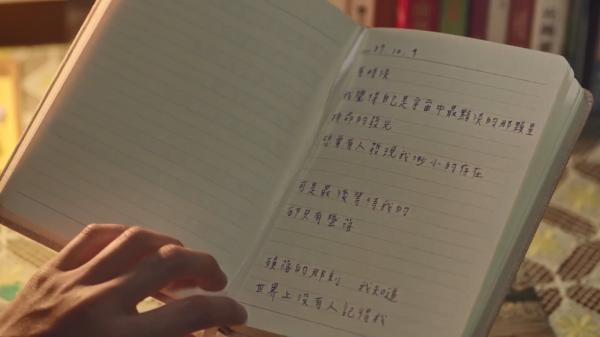 97.10.9
有時候
我覺得自己是宇宙中最黯淡的那顆星
拚命的發光
想要有人發現我渺小的存在
可是最後等待我的
卻只有墜落
墜落的那刻 我知道
世界上沒有人記得我